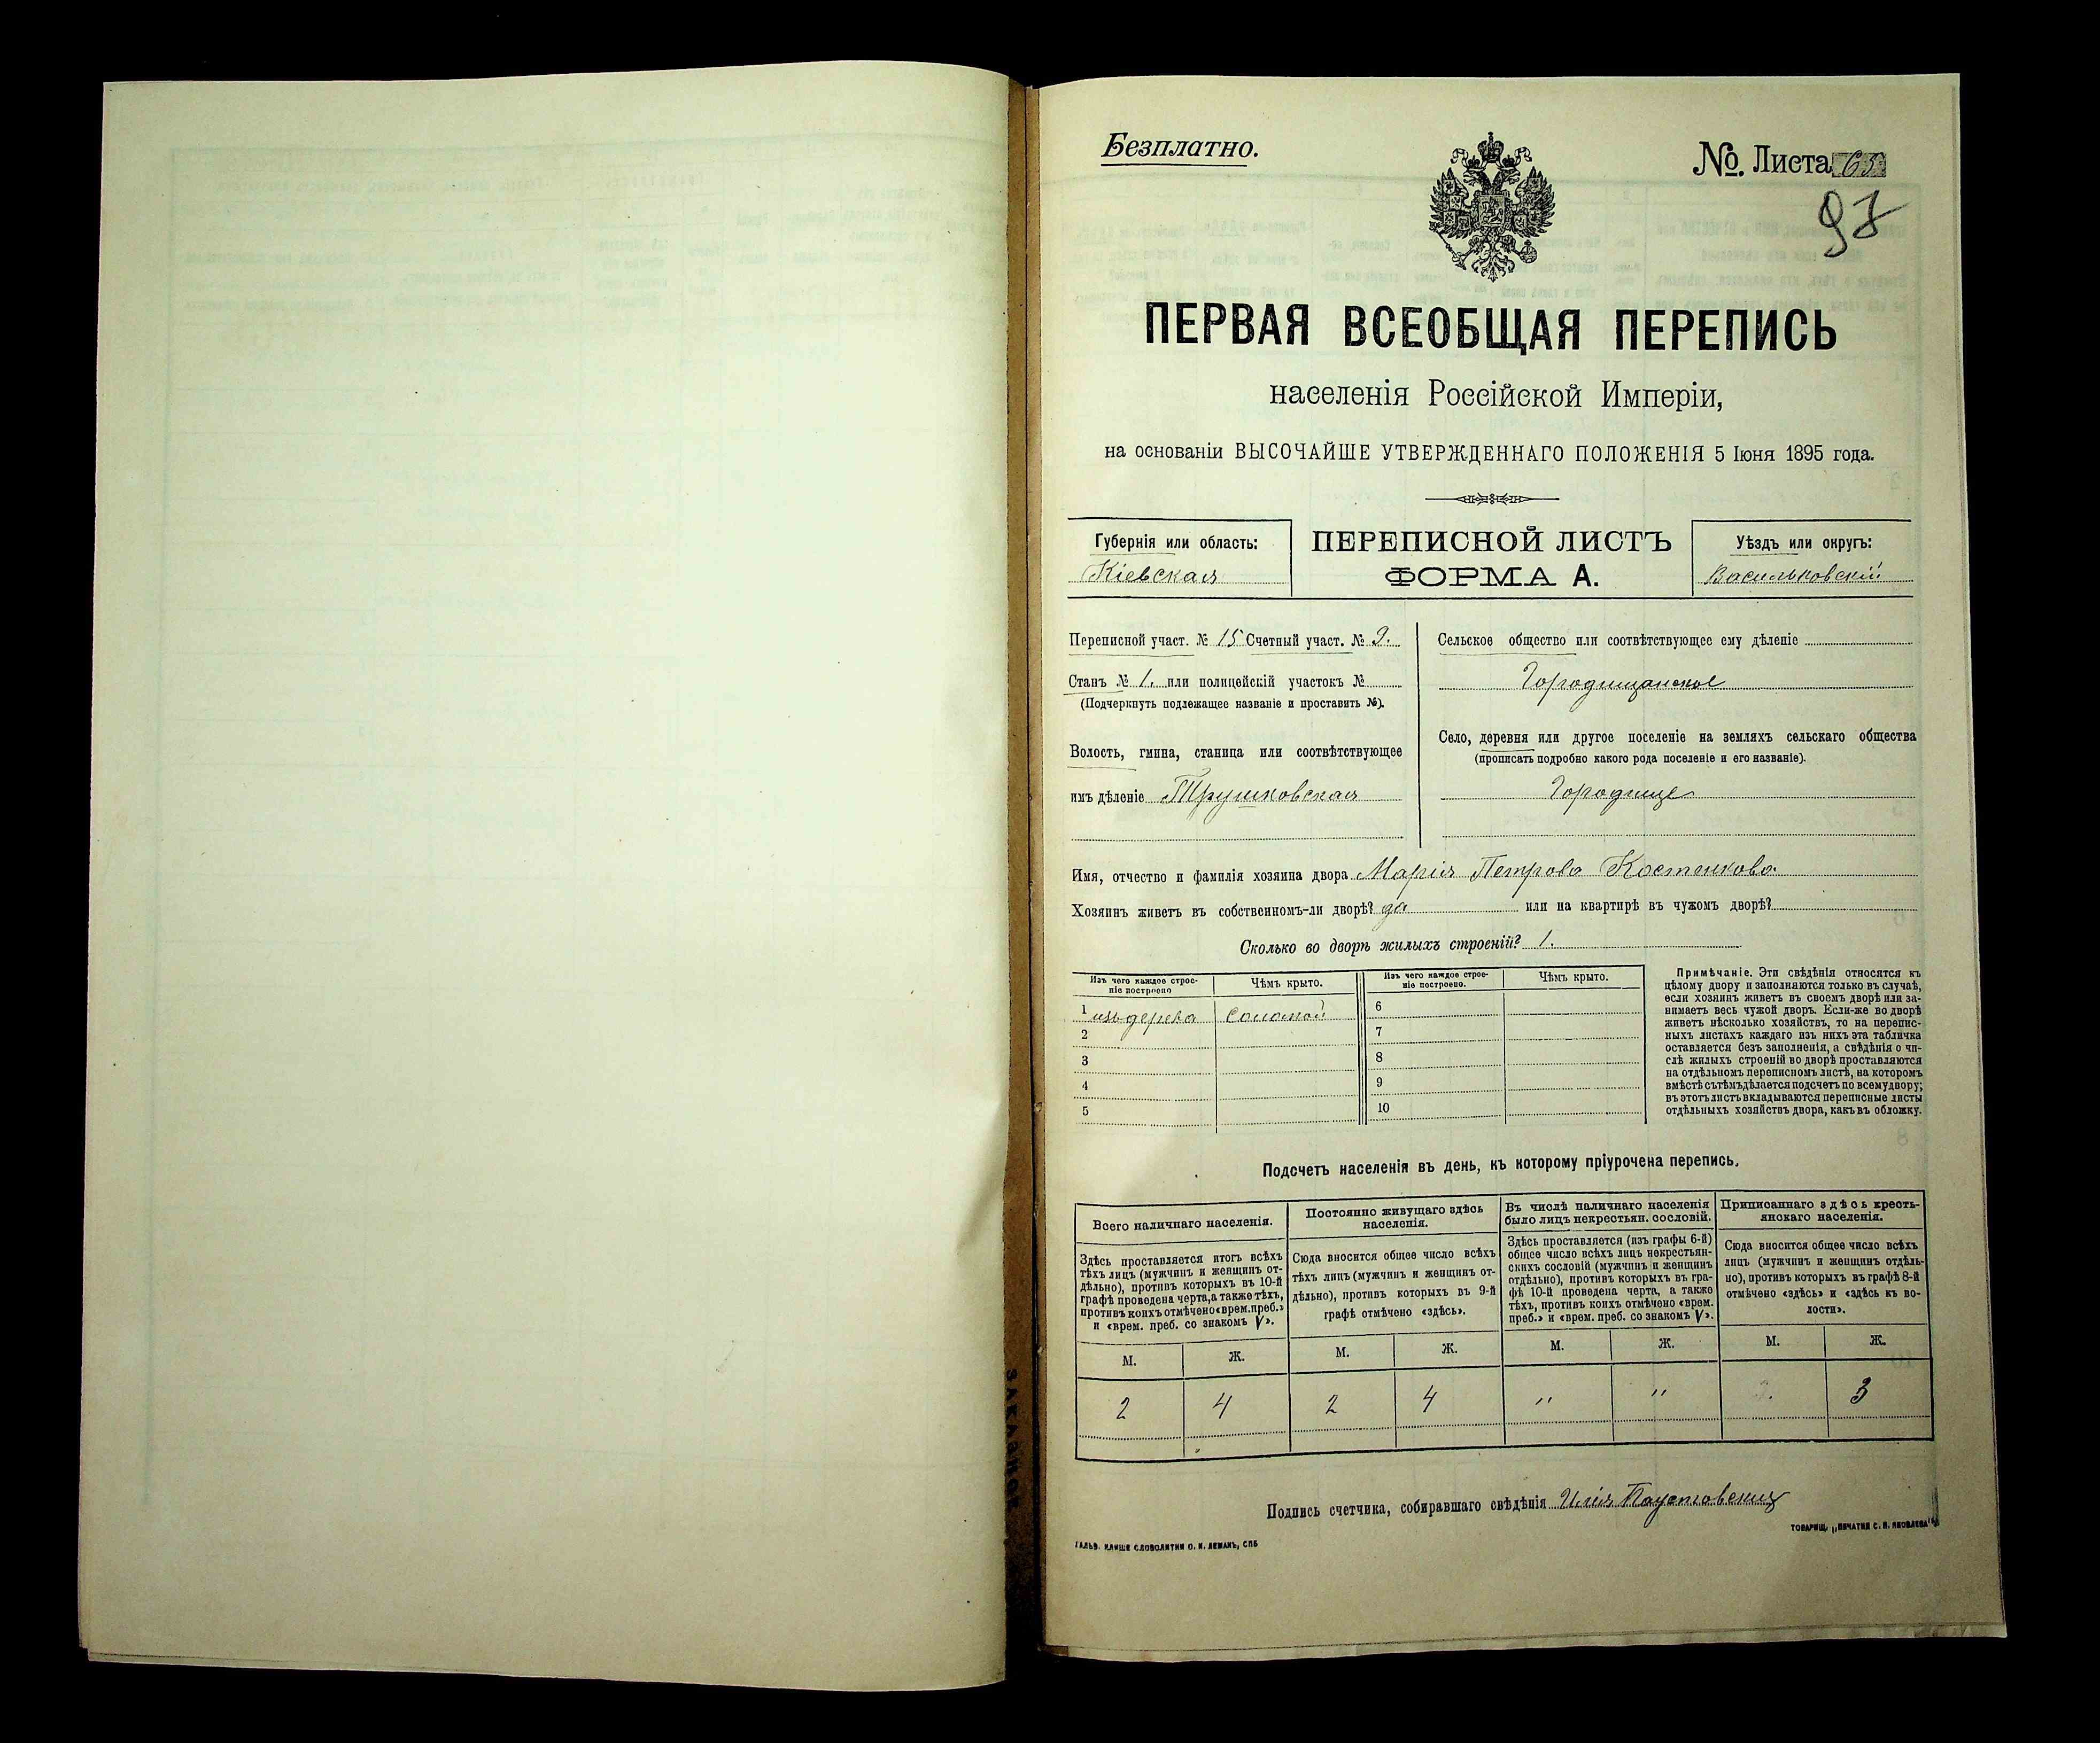 Безплатно.
№. Листа 65
97
ПЕРВАЯ ВСЕОБЩАЯ ПЕРЕПИСЬ
населенія Россійской Имперіи,
на основаніи ВЫСОЧАЙШЕ УТВЕРЖДЕННАГО ПОЛОЖЕНІЯ 5 Іюня 1895 года.
Губернія или область:
Кіевская
ПЕРЕПИСНОЙ ЛИСТЪ
ФОРМА А.
Уѣздъ или округъ:
Васильковскій
Переписной участ. № 15 Счетный участ. № 9.
Станъ № 1. или полицейскій участокъ №
(Подчеркнуть подлежащее названіе и проставить №).
Волость, гмина, станица или соотвѣтствующее
имъ дѣленіе Трушковская
Сельское общество или соотвѣтствующее ему дѣленіе
Городищанское
Село, деревня или другое поселеніе на земляхъ сельскаго общества
(прописать подробно какого рода поселеніе и его названіе).
Городище
Имя, отчество и фамилія хозяина двора Марія Петрова Костенкова
Хозяинъ живетъ въ собственномъ-ли дворѣ? да или на квартирѣ въ чужомъ дворѣ?
Сколько во дворѣ жилыхъ строеній? 1.
Изъ чего каждое строе-
ніе построено
Чѣмъ крыто.
1 изъ дерева Соломой
2
3
4
5
Изъ чего каждое строе-
ніе построено.
Чѣмъ крыто.
6
7
8
9
10
Примѣчаніе. Эти свѣдѣнія относятся къ
цѣлому двору и заполняются только въ случаѣ,
если хозяинъ живетъ въ своемъ дворѣ или за-
нимаетъ весь чужой дворъ. Если-же во дворѣ
живетъ нѣсколько хозяйствъ, то на перепис-
ныхъ листахъ каждаго изъ нихъ эта табличка
оставляется безъ заполненія, а свѣдѣнія о чи-
слѣ жилыхъ строеній во дворѣ проставляются
на отдѣльномъ переписномъ листѣ, на которомъ
вмѣстѣ съ тѣмъ дѣлается подсчетъ по всему двору;
въ этотъ листъ вкладываются переписные листы
отдѣльныхъ хозяйствъ двора, какъ въ обложку.
Подсчетъ населенія въ день, къ которому пріурочена перепись.
Всего наличнаго населенія.
Здѣсь проставляется итогъ всѣхъ
тѣхъ лицъ (мужчинъ и женщинъ от-
дѣльно), противъ которыхъ въ 10-й
графѣ проведена черта, а также тѣхъ,
противъ коихъ отмѣчено «врем. преб.»
и «врем. преб. со знакомъ V».
Постоянно живущаго здѣсь
населенія.
Сюда вносится общее число всѣхъ
тѣхъ лицъ (мужчинъ и женщинъ от-
дѣльно), противъ которыхъ въ 9-й
графѣ отмѣчено «здѣсь».
Въ числѣ наличнаго населенія
было лицъ некрестьян. сословій.
Здѣсь проставляется (изъ графы 6-й)
общее число всѣхъ лицъ некрестьян-
скихъ сословій (мужчинъ и женщинъ
отдѣльно), противъ которыхъ въ гра-
фѣ 10-й проведена черта, а также
тѣхъ, противъ коихъ отмѣчено «врем.
преб.» и «врем. преб. со знакомъ V».
Приписаннаго здѣсь кресть-
янскаго населенія.
Сюда вносится общее число всѣхъ
лицъ (мужчинъ и женщинъ отдѣль-
но), противъ которыхъ въ графѣ 8-й
отмѣчено «здѣсь» и «здѣсь къ во-
лости».
М. Ж. М. Ж. М. Ж. М. Ж.
2 4 2 4 " " 3
Подпись счетчика, собиравшаго свѣдѣнія Илія Паустовскій
ГАЛЬВ. КЛИШЕ СЛОВОЛИТНИ О. И. ЛЕМАНЪ, СПБ
ТОВАРИЩ. „ПЕЧАТНЯ С. П. ЯКОВЛЕВА"